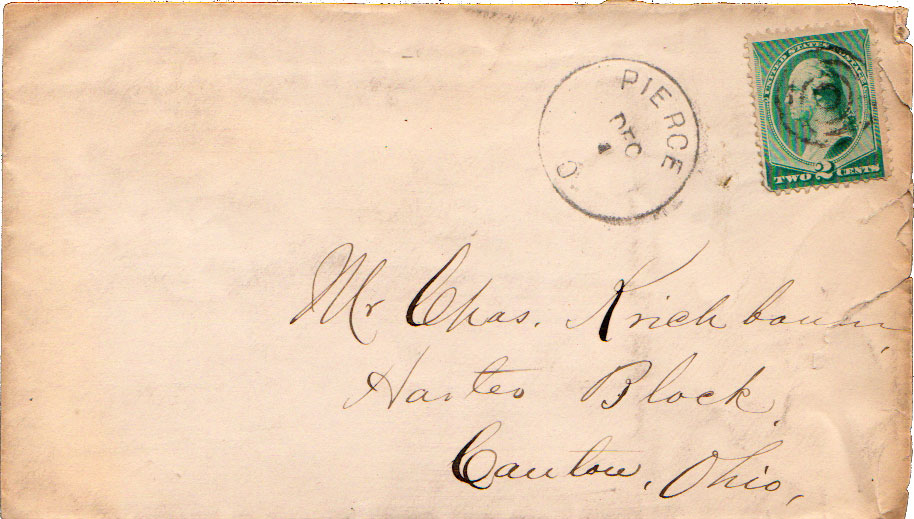 PIERCE
DEC
O
UNITED STATES POSTAGE
TWO 2 CENTS
Mr Chas. Krichbaum,
Harter Block,
Canton, Ohio,